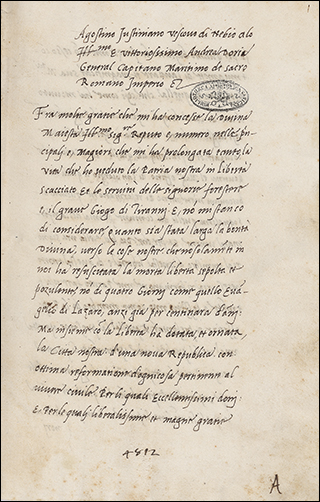 Agostino Justiniano vescovo di Nebio alo
Ill.mo E vittoriosissimo Andrea Doria
General Capitano Maritimo de sacro
Romano Imperio Ez
Fra molte gratie che mi ha concesse la Divina
Maiesta Ill.mo Sig.r Reputo e, numero nelle prin
cipali e, Magiori, che mi ha prolongata tanto la
Vita che ho veduto la Patria nostra in liberta
Scacciato Et le servitu delle signorie forestere
e, il grave Giogo di Tiranni E, nõ mi stanco
di considerare quanto sia stata larga la bontà
Divina, verso le cose nostre che nõ solamẽti in
noi ha resuscitata la morta liberta sepolta et
puzulente nõ di quatro Giorni come quello Evã
gelico di Lazaro, anzi già per centinara d'añi.
Ma insieme cõ la liberta ha dotata, et ornata
la Città nostra d'una nova Republica con
ottima reformatione degnicosa pertinente al
vivere civile Per li quali Eccellentissimi doni
E, Per le quali liberalissime et magne gratie
4812
A